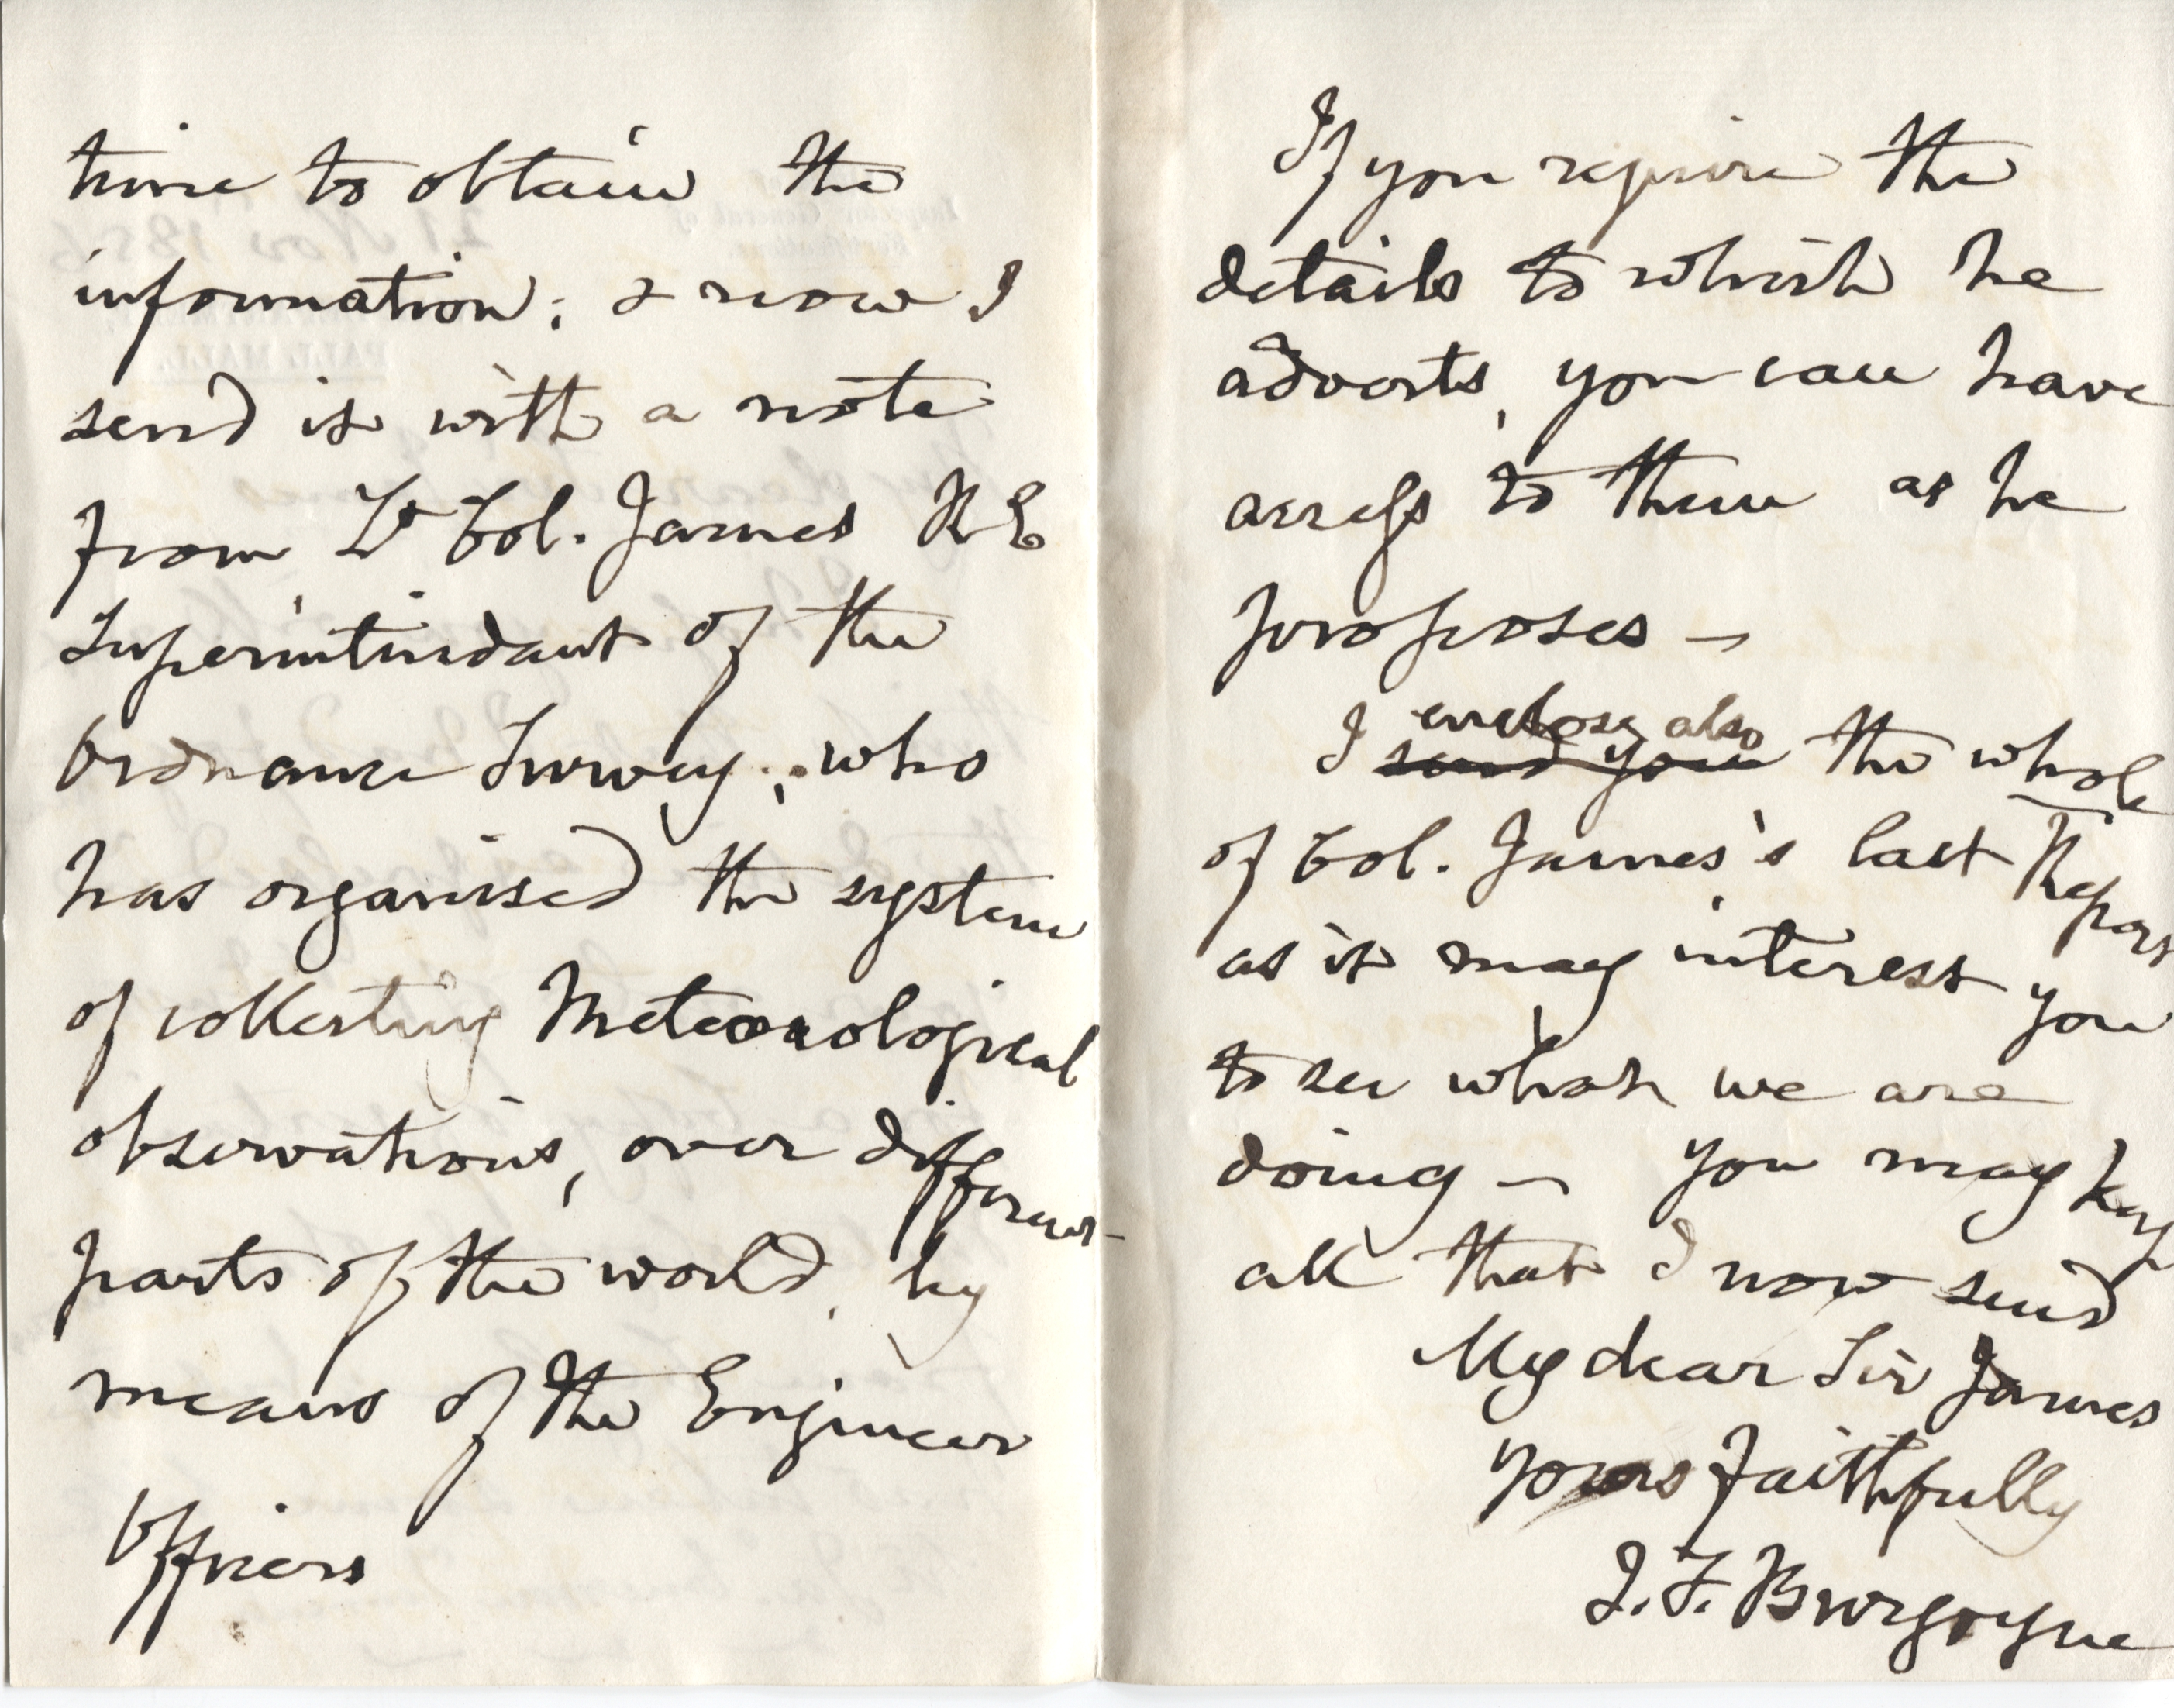 time to obtain the
information; & now I
send it with a note
from Lt Col. James RE
Superintendant of the
Ordnance Survey; who
has organised the system
of collecting Meteorological
observations, over different
parts of the world, by
means of the Engineer
Officers
If you require the
details to which he
adverts, you can have
access to them as he
proposes —
enclose also
I send you the whole
of Col. James's last Report
as it may interest you
to see what we are
doing — you may keep
all that I now send
My dear Sir James
Yours faithfully
J. F. Burgoyne